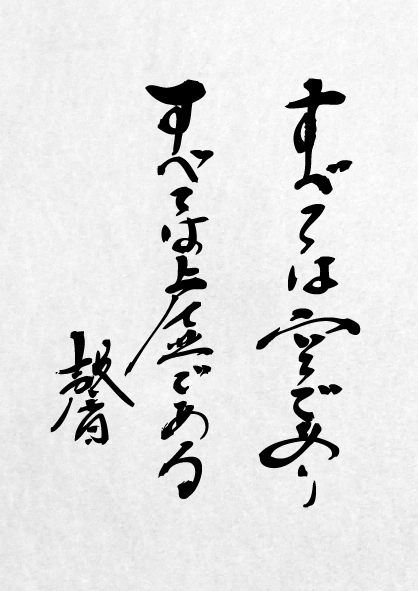 すべては空であり
すべては虚である
馨